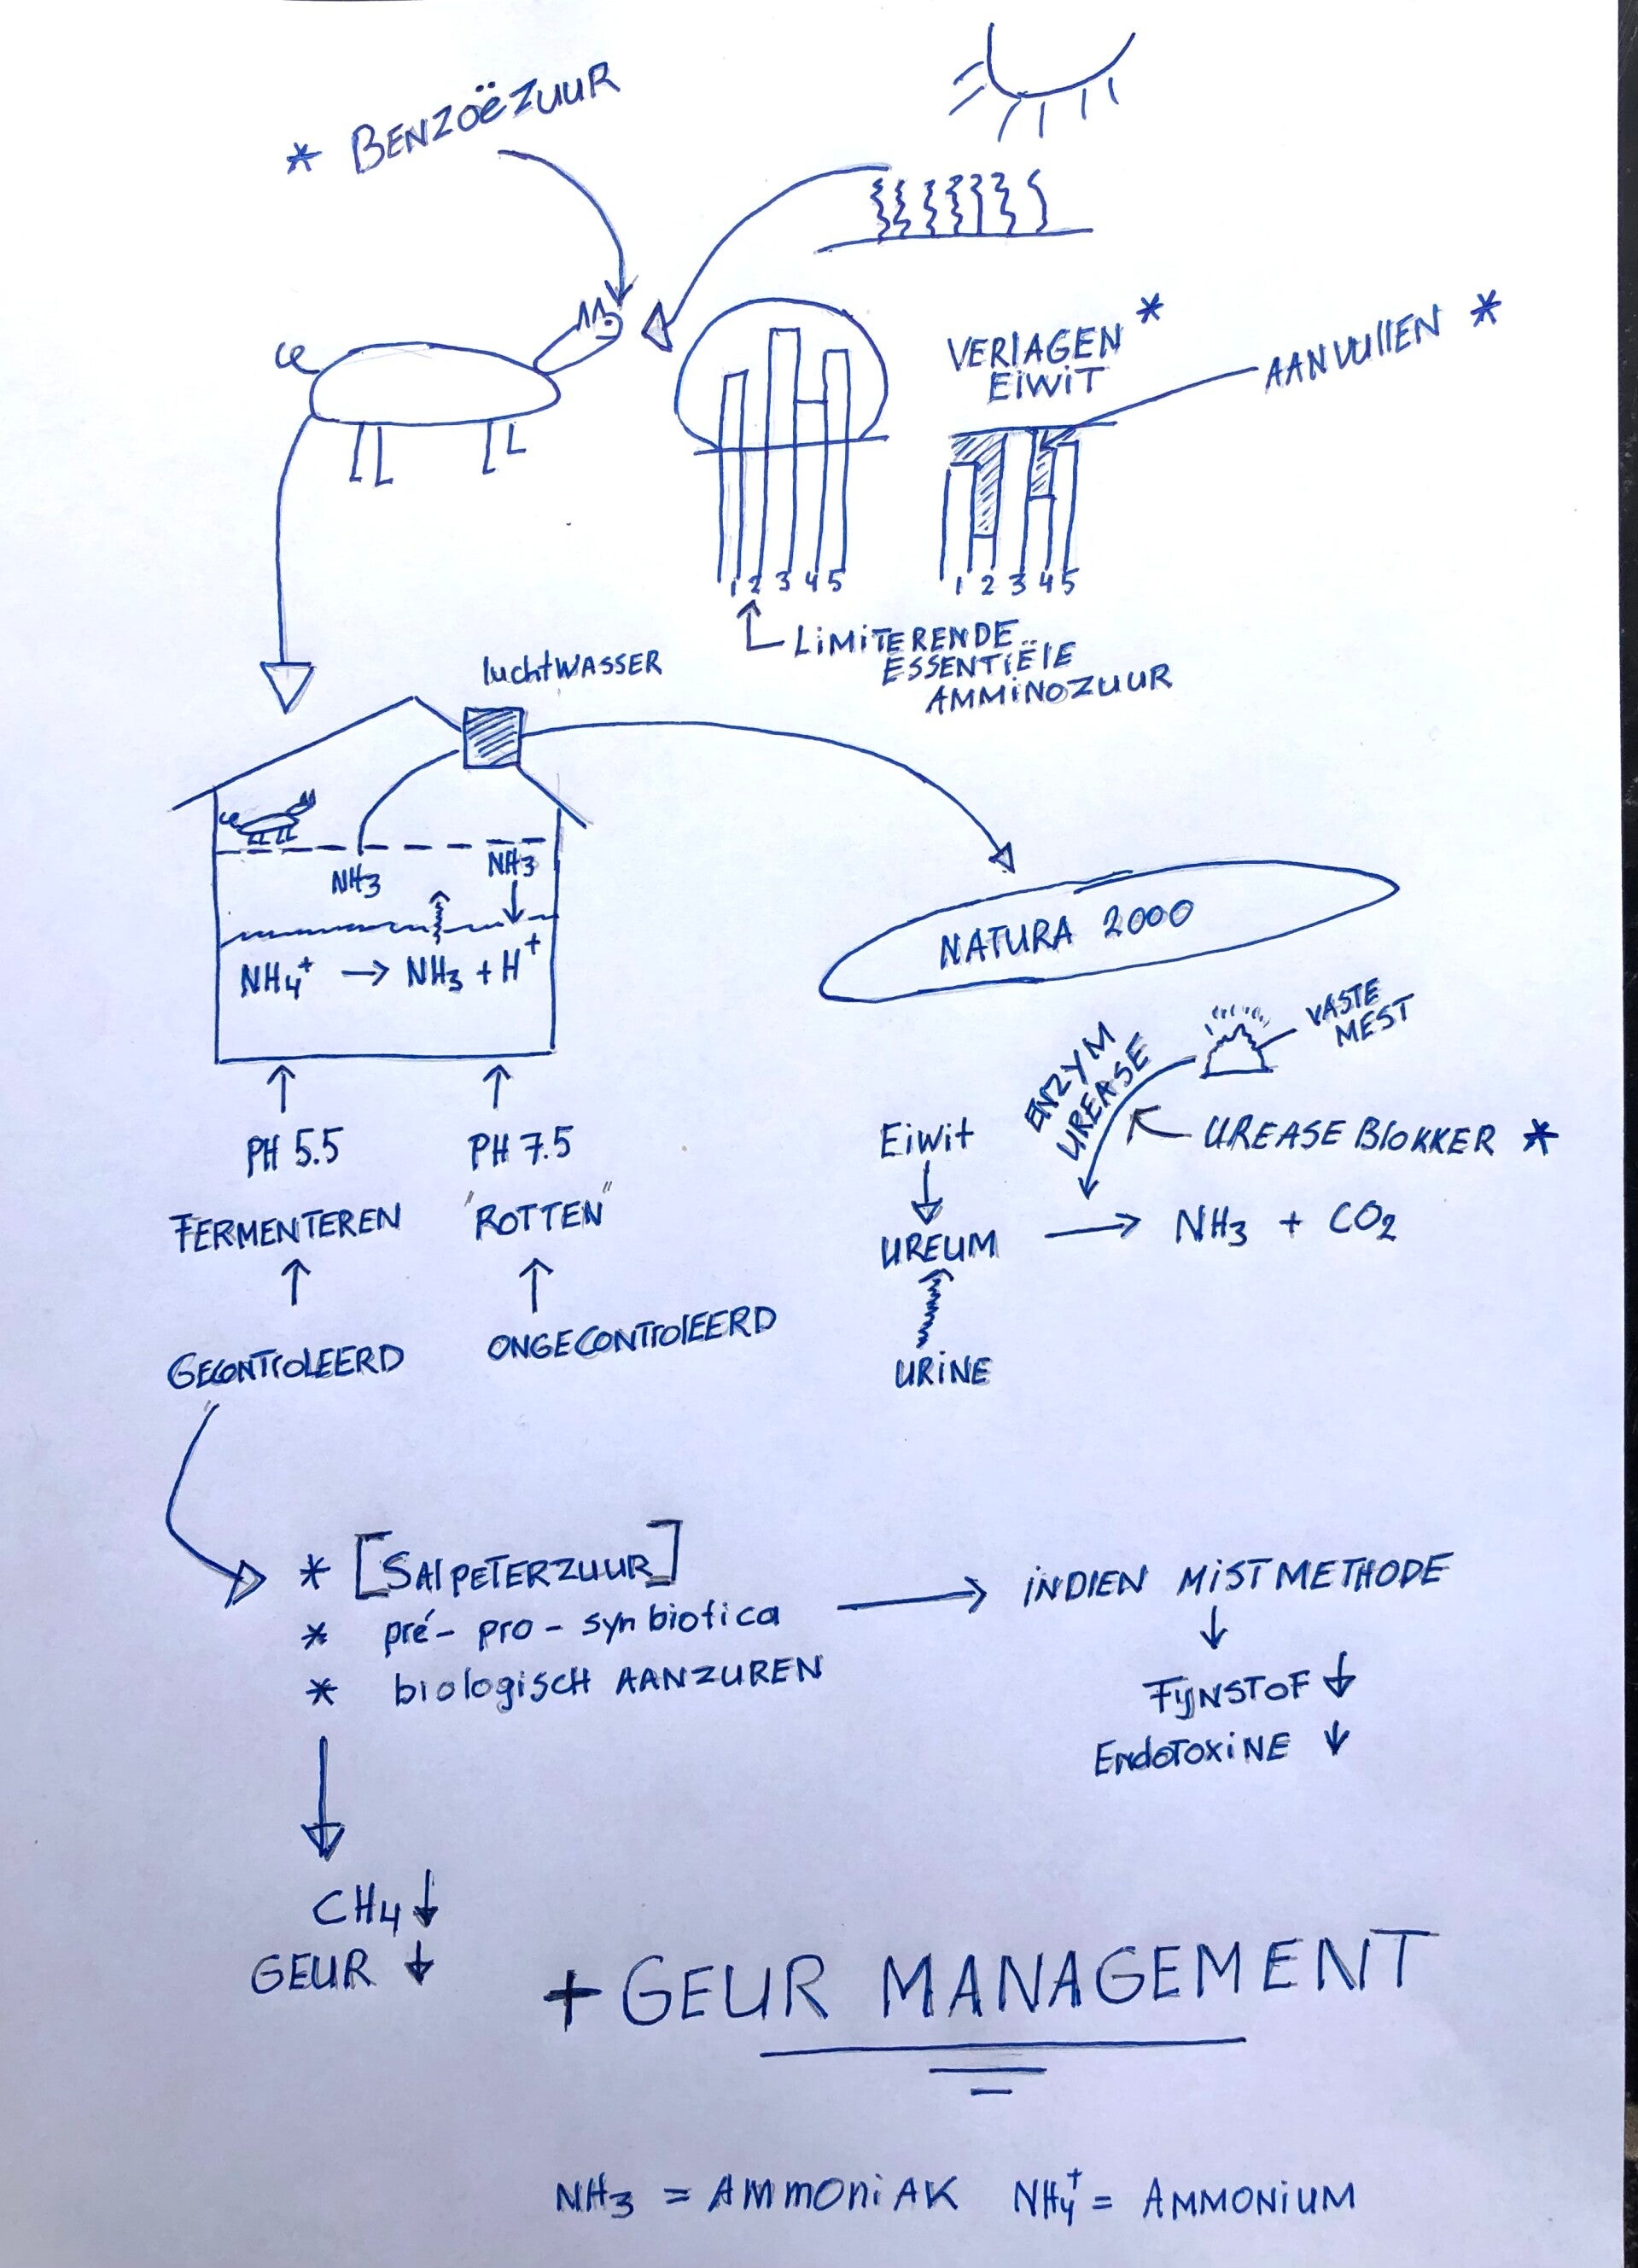 * BENZOËZUUR
VERLAGEN *
EIWIT
AANVULLEN *
1 2 3 4 5
1 2 3 4 5
LIMITERENDE
ESSENTIËLE
AMMINOZUUR
luchtWASSER
NH3
NH3
NH4+ → NH3 + H+
NATURA 2000
VASTE
MEST
ENZYM
UREASE
UREASE BLOKKER *
Eiwit
UREUM → NH3 + CO2
URINE
PH 5.5
PH 7.5
FERMENTEREN
"ROTTEN"
GECONTROLEERD
ONGECONTROLEERD
* [SALPETERZUUR]
* pré- pro- synbiotica → INDIEN MISTMETHODE
* biologisch AANZUREN
FIJNSTOF ↓
EndoTOXINE ↓
CH4 ↓
GEUR ↓
+ GEUR MANAGEMENT
NH3 = AMMONIAK NH4+ = AMMONIUM